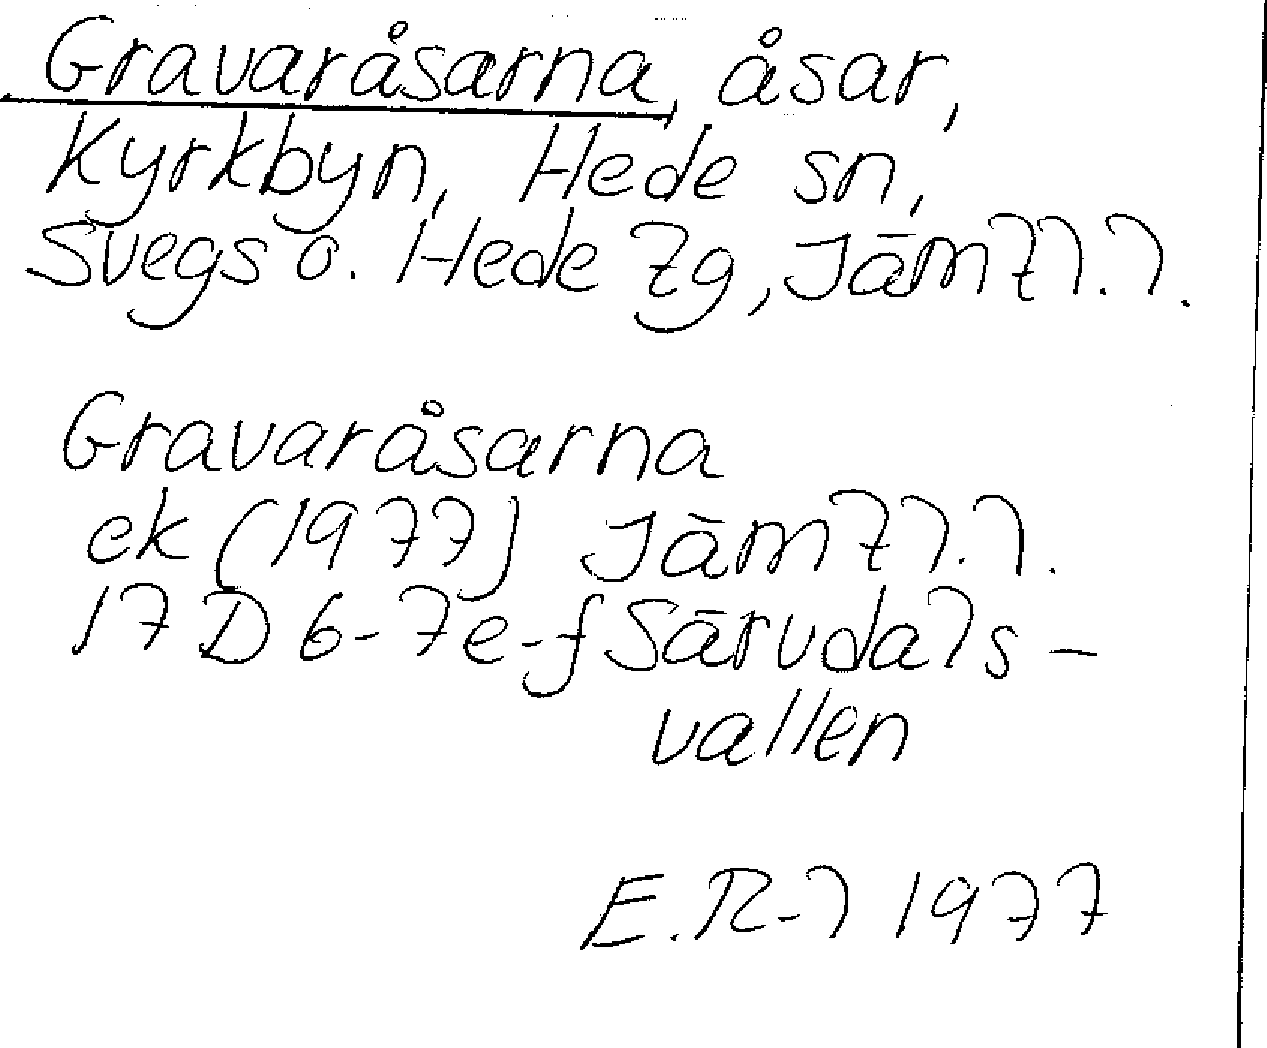 Gravaråsarna, åsar,
Kyrkbyn, Hede sn,
Svegs o. Hede tg, Jämtl.l.
Gravaråsarna
ek (1977) Jämtl.l.
17 D 6-7e-f Särvdals-
vallen
E.R-l 1977